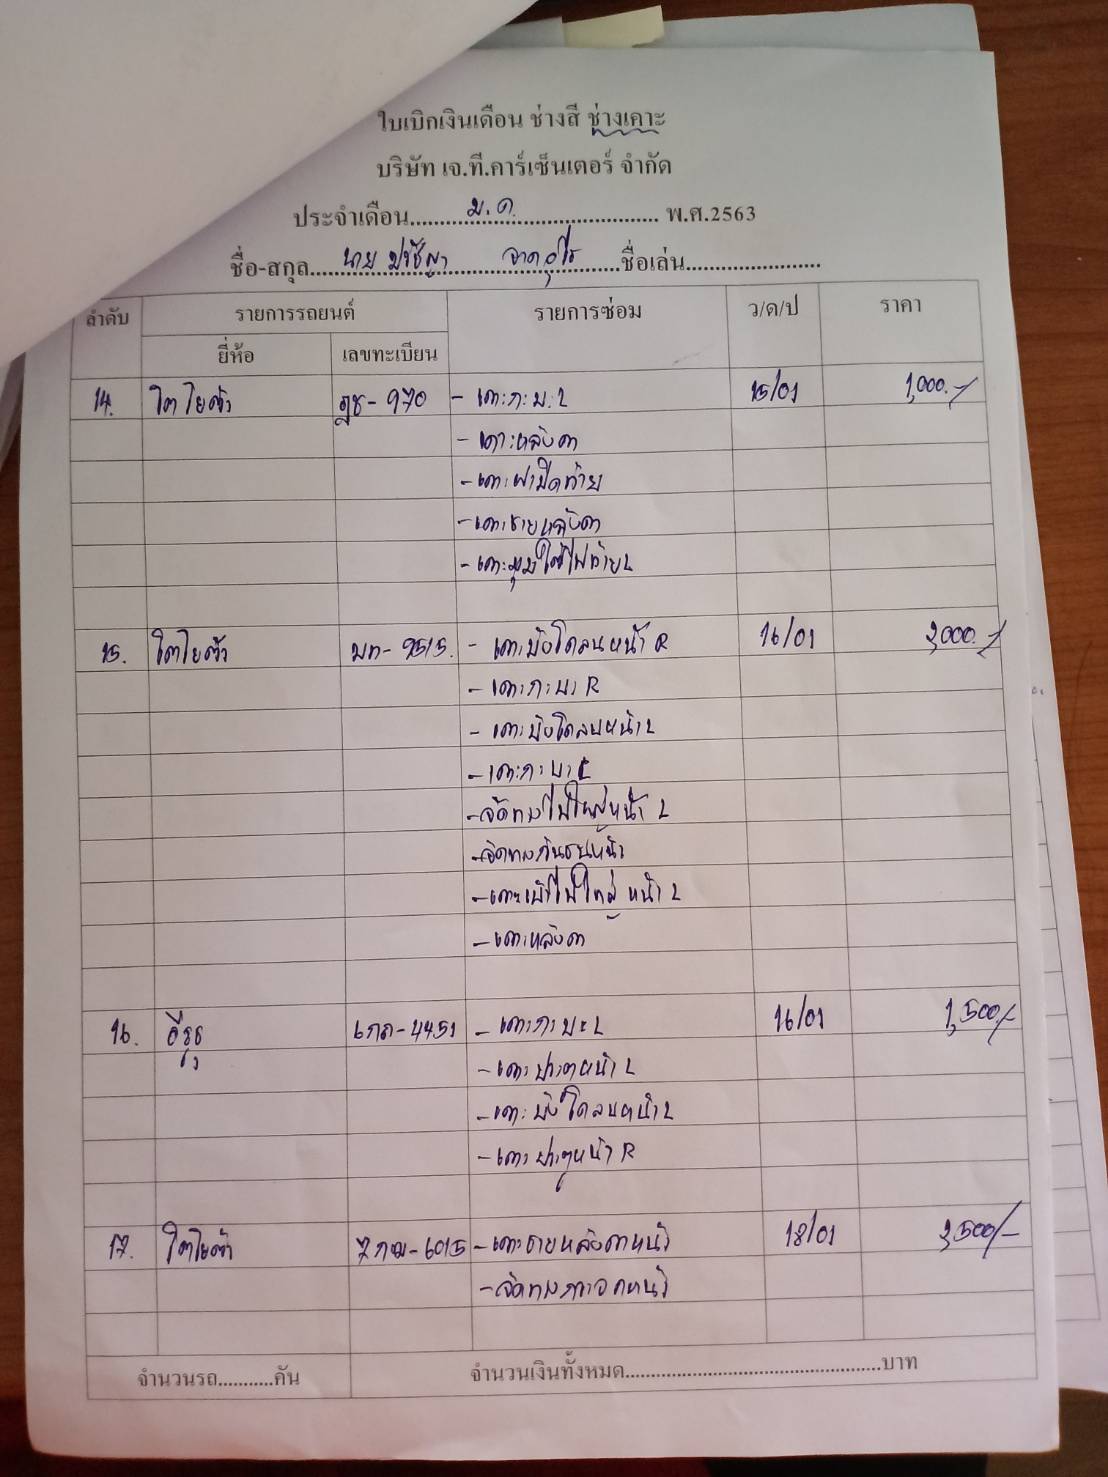 ใบเบิกเงินเดือน ช่างสี ช่างเคาะ
บริษัท เจ.ที.คาร์เซ็นเตอร์ จำกัด
ประจำเดือน......ม.ค.......... พ.ศ.2563
ชื่อ-สกุล.....นาย ปรัชญา..........ชื่อเล่น.......................
ลำดับ รายการรถยนต์ รายการซ่อม ว/ด/ป ราคา
ยี่ห้อ เลขทะเบียน
14. โตโยต้า ฎธ-970 - เคาะกะบะ L 15/01 1,000.-/
- เคาะหลังคา
- เคาะฝาปิดท้าย
- เคาะชายหลังคา
- เคาะมุมใต้ไฟท้าย L
15. โตโยต้า บท-9515. - เคาะบังโคลนหน้า R 16/01 3,000.-/
- เคาะกะบะ R
- เคาะบังโคลนหน้า L
- เคาะกะบะ L
- จัดทางไฟใหญ่หน้า L
- จัดทางกันชนหน้า
- เคาะเบ้าไฟใหญ่ หน้า L
- เคาะหลังคา
16. อีซูซุ 6กก-4451 - เคาะกะบะ L 16/01 1,500/-
- เคาะประตูหน้า L
- เคาะบังโคลนหน้า L
- เคาะประตูหน้า R
17. โตโยต้า 7กฆ-6015 - เคาะชายหลังคาหน้า 18/01 3,500/-
- จัดทางกระจกหน้า
จำนวนรถ...........คัน จำนวนเงินทั้งหมด...............................................บาท